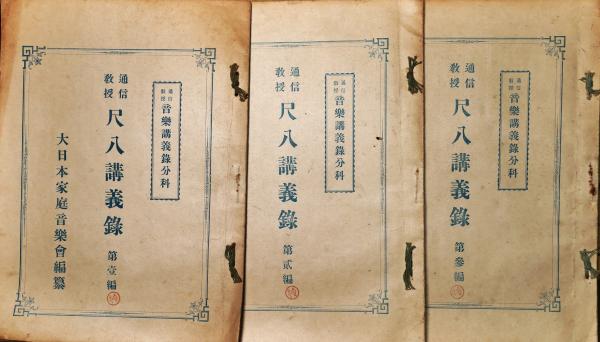 通信教授 音樂講義錄分科
通信教授 尺八講義錄 第壹編
大日本家庭音樂會編纂
通信教授 音樂講義錄分科
通信教授 尺八講義錄 第貳編
通信教授 音樂講義錄分科
通信教授 尺八講義錄 第參編